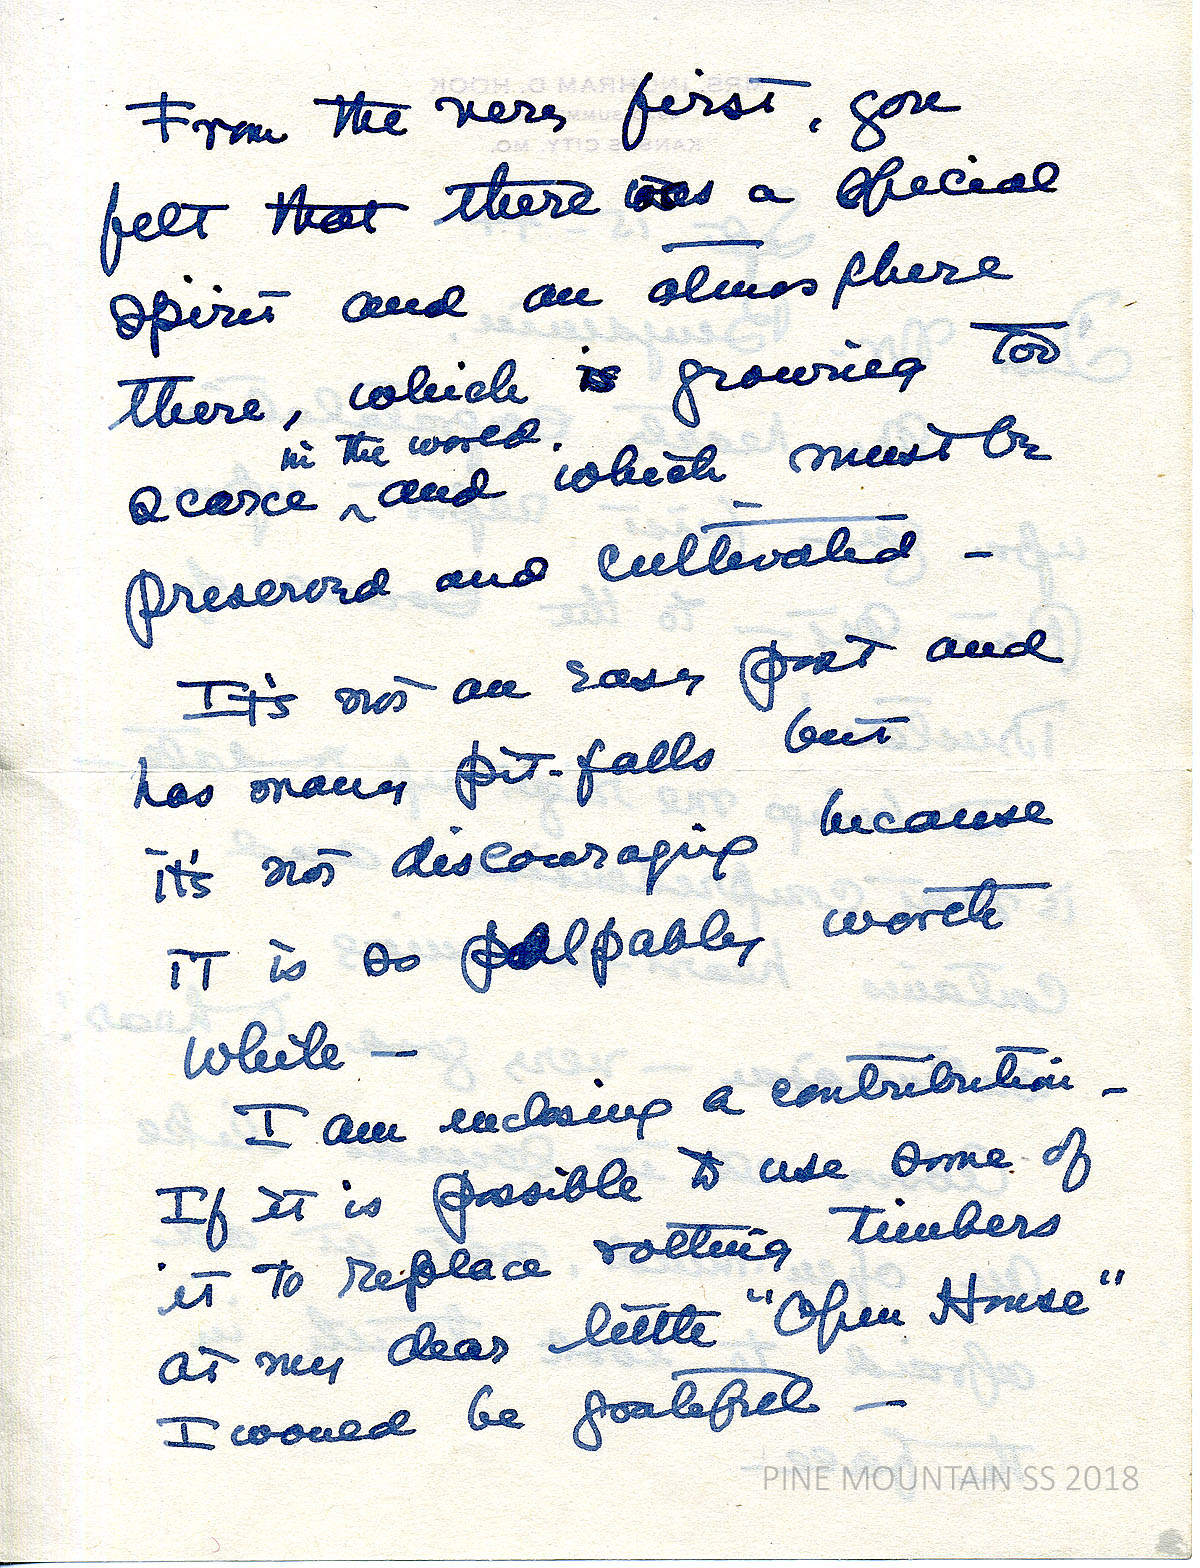 From the very first, you
felt that there was a special
spirit and an atmosphere
there, which is growing too
in the world.
scarce ^ and which must be
preserved and cultivated -
It's not an easy post and
has many pit-falls but
it's not discouraging because
it is so palpably worth
while -
I am enclosing a contribution -
If it is possible to use some of
it to replace rotting timbers
at my dear little "Open House"
I would be grateful -
PINE MOUNTAIN SS 2018